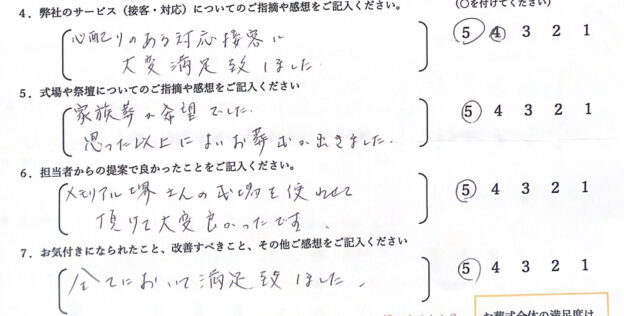 (○を付けてください)
4．弊社のサービス（接客・対応）についてのご指摘や感想をご記入ください。
心配りのある対応接客に
大変満足致しました
5 4 3 2 1
5．式場や祭壇についてのご指摘や感想をご記入ください
家族葬が希望でした.
思った以上によいお葬式が出きました.
5 4 3 2 1
6．担当者からの提案で良かったことをご記入ください。
メモリアル堺さんの式場を使わせて
頂けて大変良かったです.
5 4 3 2 1
7．お気付きになられたこと、改善すべきこと、その他ご感想をご記入ください
全てにおいて満足致しました.
5 4 3 2 1
お葬式全体の満足度は